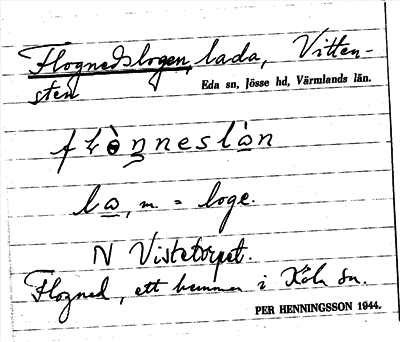 Flognedslogen, lada, Vitten-
sten
Eda sn, Jösse hd, Värmlands län.
la, m. = loge.
N Vistetorpet.
Flogned, ett hemman i Köla sn.
PER HENNINGSSON 1944.